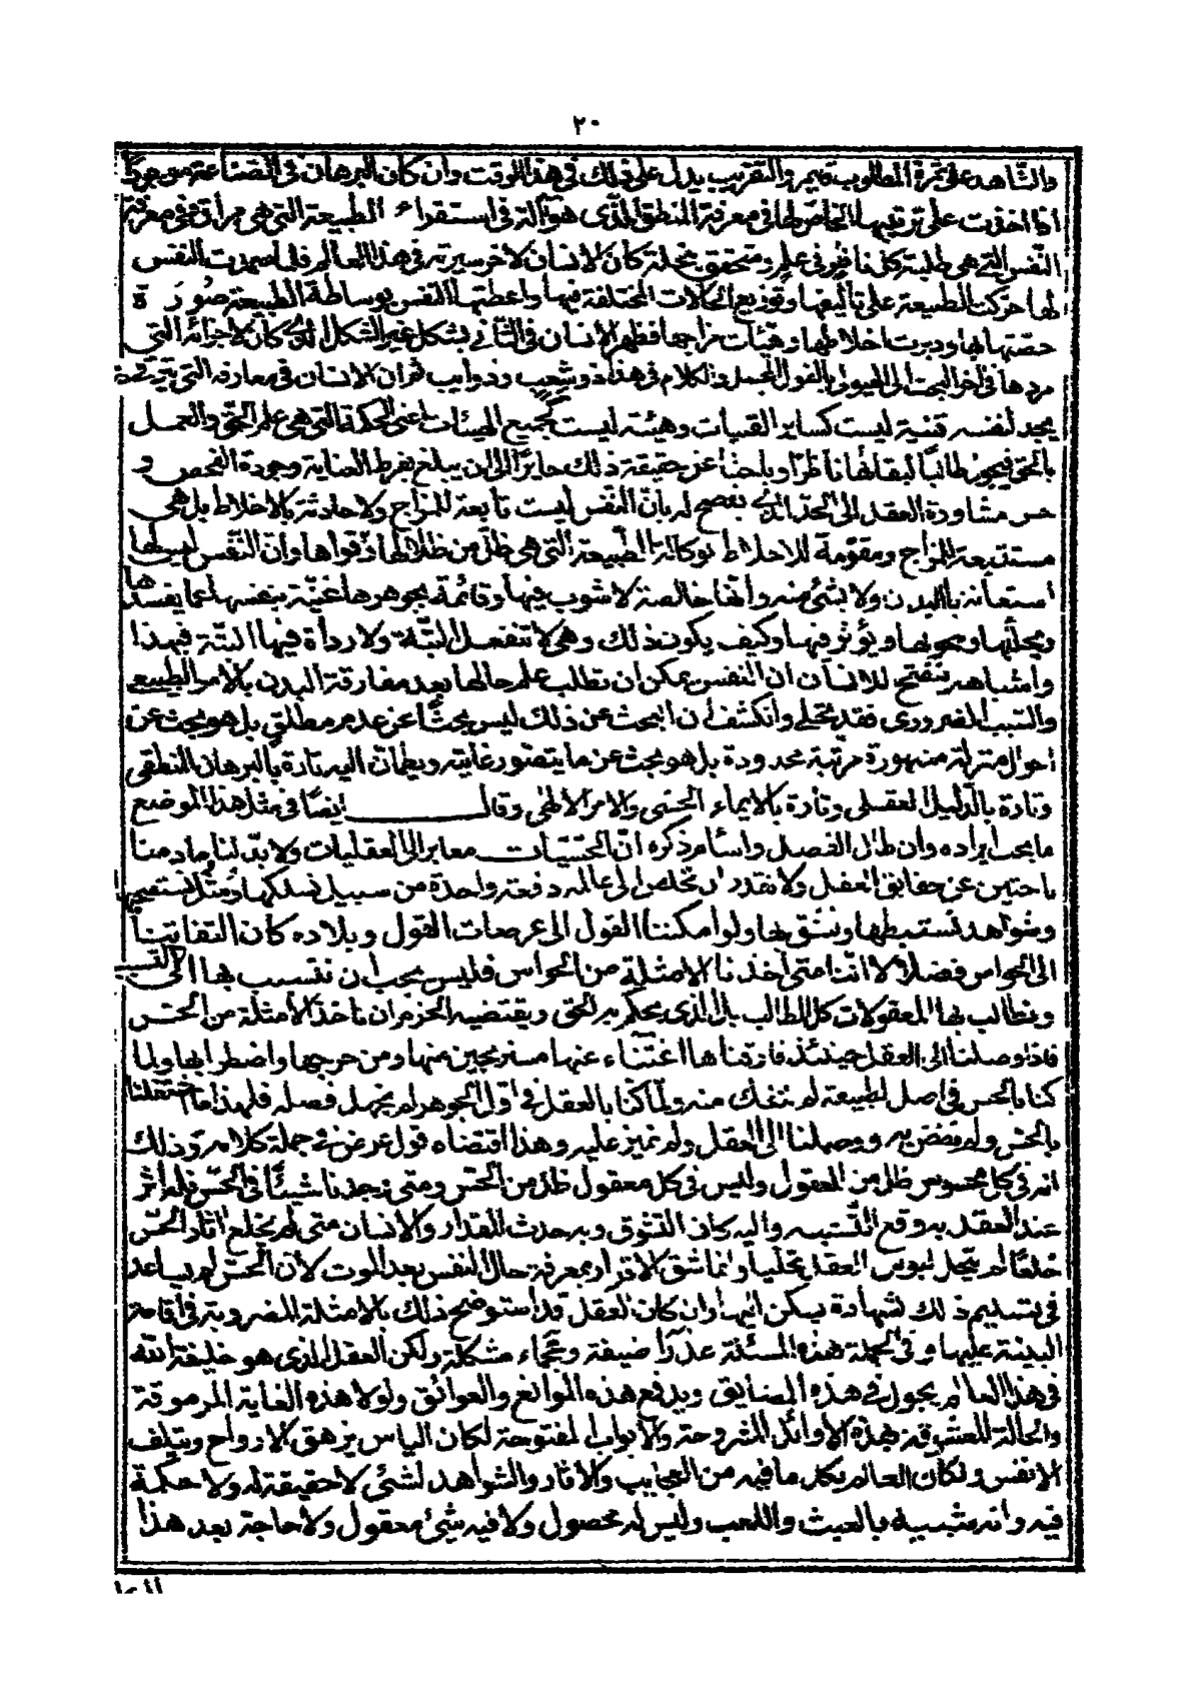 ٢٠
والشاهد على ثمرة المطلوب قايم والتقريب يدل على ذلك في هذا الوقت وان كان البرهان في الصناعة موجودًا
اذا اخذت على ترتيبها الخاص لها في معرفة المنطق الذي هو آلة في استقراء الطبيعة التي هي مرآة في معرفة
النفس التي هي طلبة كل ناظر في علم ومتحقق بنحلة كان الانسان لآخر سيرته في هذا العالم فلما صمدت النفس
لها حركت الطبيعة على تأليفها وتوزيع الحالات المختلفة فيها واعطتها النفس بوساطة الطبيعة صورة
حصتها لها ودبرت اخلاطها وهيئات مزاجها فظهر الانسان في الثاني بشكل غير الشكل الذي كان لاجزائه التي
مردها في آخر البحث الى الهيولى بالقول المجمل والكلام في هذا ذو شعب وذوايب ثم ان الانسان في معارفه التي يترقى
يجد لنفسه قنية ليست كساير القنيات وهيئة ليست كجميع الهيئات اعني الحكمة التي هي علم الحق والعمل
بالحق فيجوز طالبًا لبقائها ناظرًا وباحثًا عن حقيقة ذلك حايرًا الى ان يبلغ بفرط العناية وجودة الفحص و
حسن مشاورة العقل الى الحد الذي يفصح له بان النفس ليست تابعة للمزاج ولا حادثة بالاخلاط بل هي
مستتبعة للمزاج ومقومة للاخلاط بوكالة الطبيعة التي هي ظل من ظلالها وقواها وان النفس ليس لها
استعانة بالبدن ولا بشئ منه وانها خالصة لا شوب فيها وقائمة بجوهرها غنية بنفسها عما يفسدها
ويحللها ويؤثر فيها وكيف يكون ذلك وهي لا تنفعل البتة ولا رداة فيها البتة فبهذا
واشباهه ينفتح للانسان ان النفس يمكن ان تطلب علم حالها بعد مفارقة البدن بالامر الطبيعي
والسبب الضروري فقد تجلى وانكشف ان البحث عن ذلك ليس بحثًا عن عدم مطلق بل هو بحث عن
احوال منزلة مرتبة محدودة بل هو بحث عن ما يتصور غايته ويطمان اليه تارة بالبرهان المنطقي
وتارة بالدليل العقلي وتارة بالايماء الحسي والامر الالهي وقال ايضًا في مثل هذا الموضع
ما يجب ايراده وان طال الفصل واسئم ذكره ان الحسيات معابر الى العقليات ولا بد لنا ما دمنا
باحثين عن حقايق العقل ولا نقدر ان نخلص الى عالمه دفعة واحدة من سبيل نسلكها ومثل نستصحبها
وشواهد نستنبطها ونثق بها ولو امكننا القول الى عرصات القول وبلاده كان التفاتنا
الى الحواس فضلا الا اننا متى اخذنا الامثلة من الحواس فليس يجب ان نتسبب بها
ونطالب بها المعقولات كل المطالب بل الذي يحكم به الحق ويقتضيه الحزم ان ناخذ الامثلة من الحس
فاذا وصلنا الى العقل حينئذ فارقناها اغتناء عنها مستريحين منها ومن حرجها واضطرابها ولما
كنا بالحس في اصل الطبيعة لم ننفك منه ولما كنا بالعقل في اول الجوهر لم نجهل فضله فلهذا ما
بالحس ووصلنا الى العقل ولم نميز عليه وهذا اقتضاه قول عرض في جملة كلام مر وذلك
انه في كل محسوس ظل من المعقول وليس في كل معقول ظل من الحس ومتى وجدنا شيئًا في الحس فله اثر
عند العقل به وقع التشبيه واليه كان التشوق وبه حدث المقدار والانسان متى لم يخلع اثار الحس
خلعًا لم يتحل لبوس العقل تحليا وانما شق الاقرار بمعرفة حال النفس بعد الموت لأن الحس لم يساعد
في تسليم ذلك لشهادة يسكن اليها وان كان العقل قد استوضح ذلك بالامثلة المضروبة في اقامة
البينة عليها وفي الجملة هذه المسئلة عذرا ضيفة وعجماء مشكلة ولكن العقل الذي هو خليفة الله
في هذا العالم يجول في هذه المضايق ويدفع هذه الموانع والعوائق ولولا هذه الغاية المرموقة
والحالة المعشوقة بهذه الأوائل المشروحة والأبواب المفتوحة لكان الياس يزهق الارواح ويتلف
الانفس ولكان العالم بكل ما فيه من العجايب والآثار والشواهد لشئ لا حقيقة له ولا حكمة
فيه وانه شبيه بالعبث واللعب وليس له محصول ولا فيه شئ معقول ولا حاجة بعد هذا